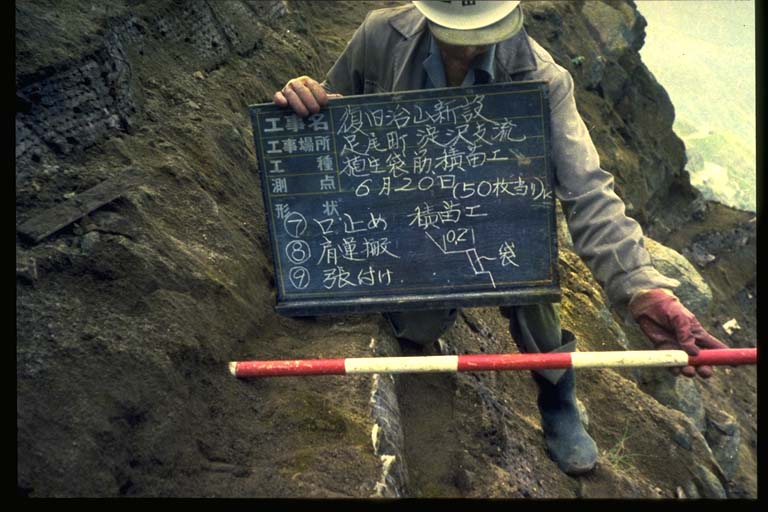 工事名 復旧治山新設
工事場所 足尾町 渋沢支流
工種 植生袋筋積苗工
測点 6月20日(50枚当り)
形状
⑦ 口止め 積苗工
⑧ 肩運搬 1021 袋
⑨ 張付け